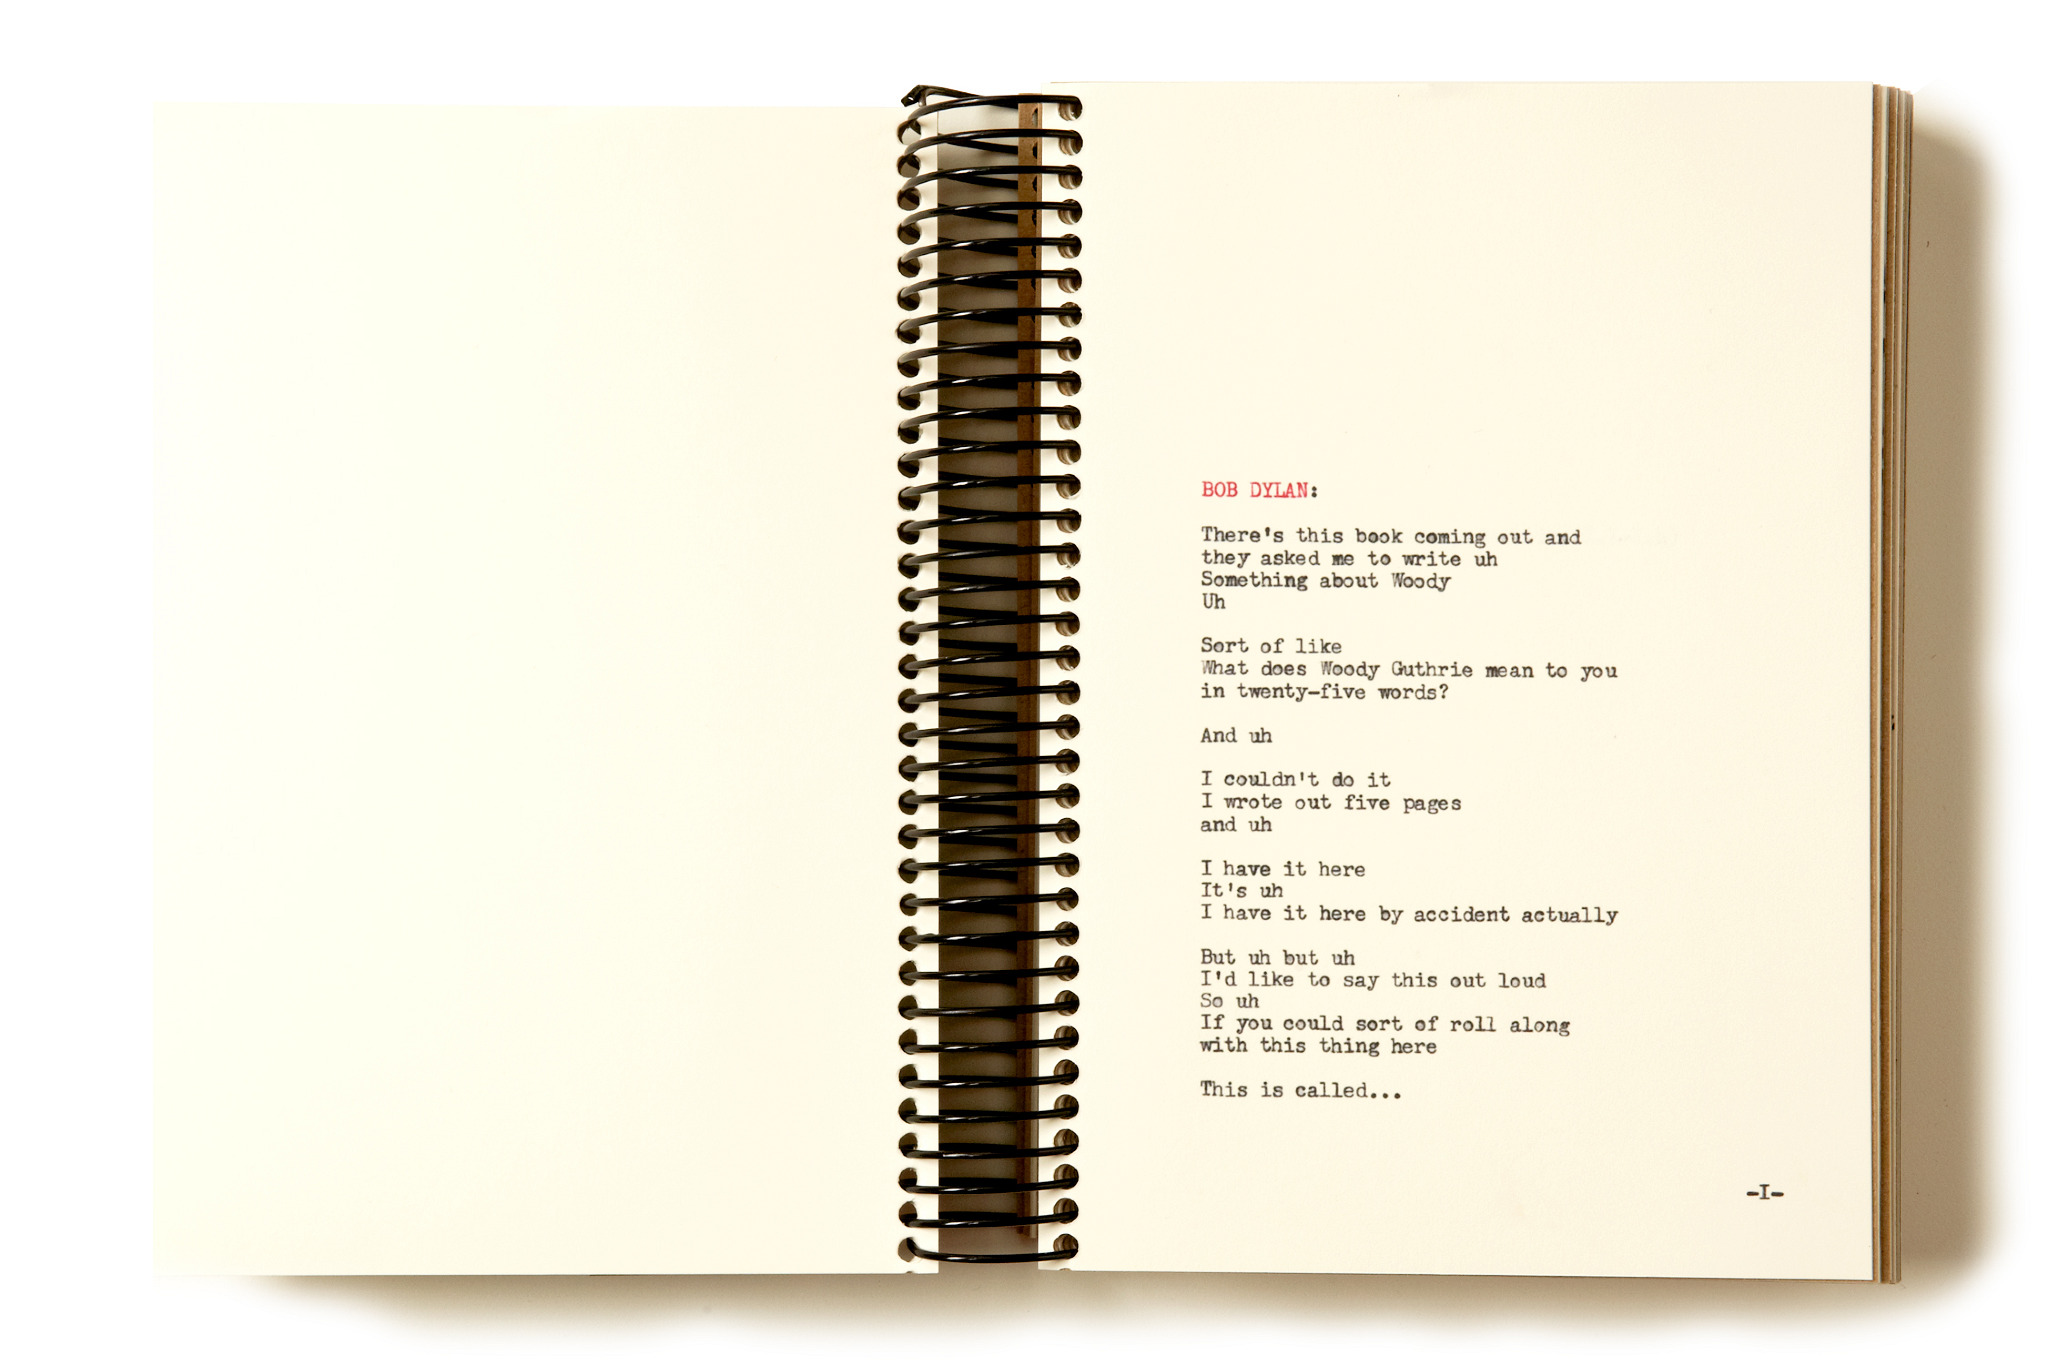 BOB DYLAN:
There's this book coming out and
they asked me to write uh
Something about Woody
Uh
Sort of like
What does Woody Guthrie mean to you
in twenty-five words?
And uh
I couldn't do it
I wrote out five pages
and uh
I have it here
It's uh
I have it here by accident actually
But uh but uh
I'd like to say this out loud
So uh
If you could sort of roll along
with this thing here
This is called...
-I-